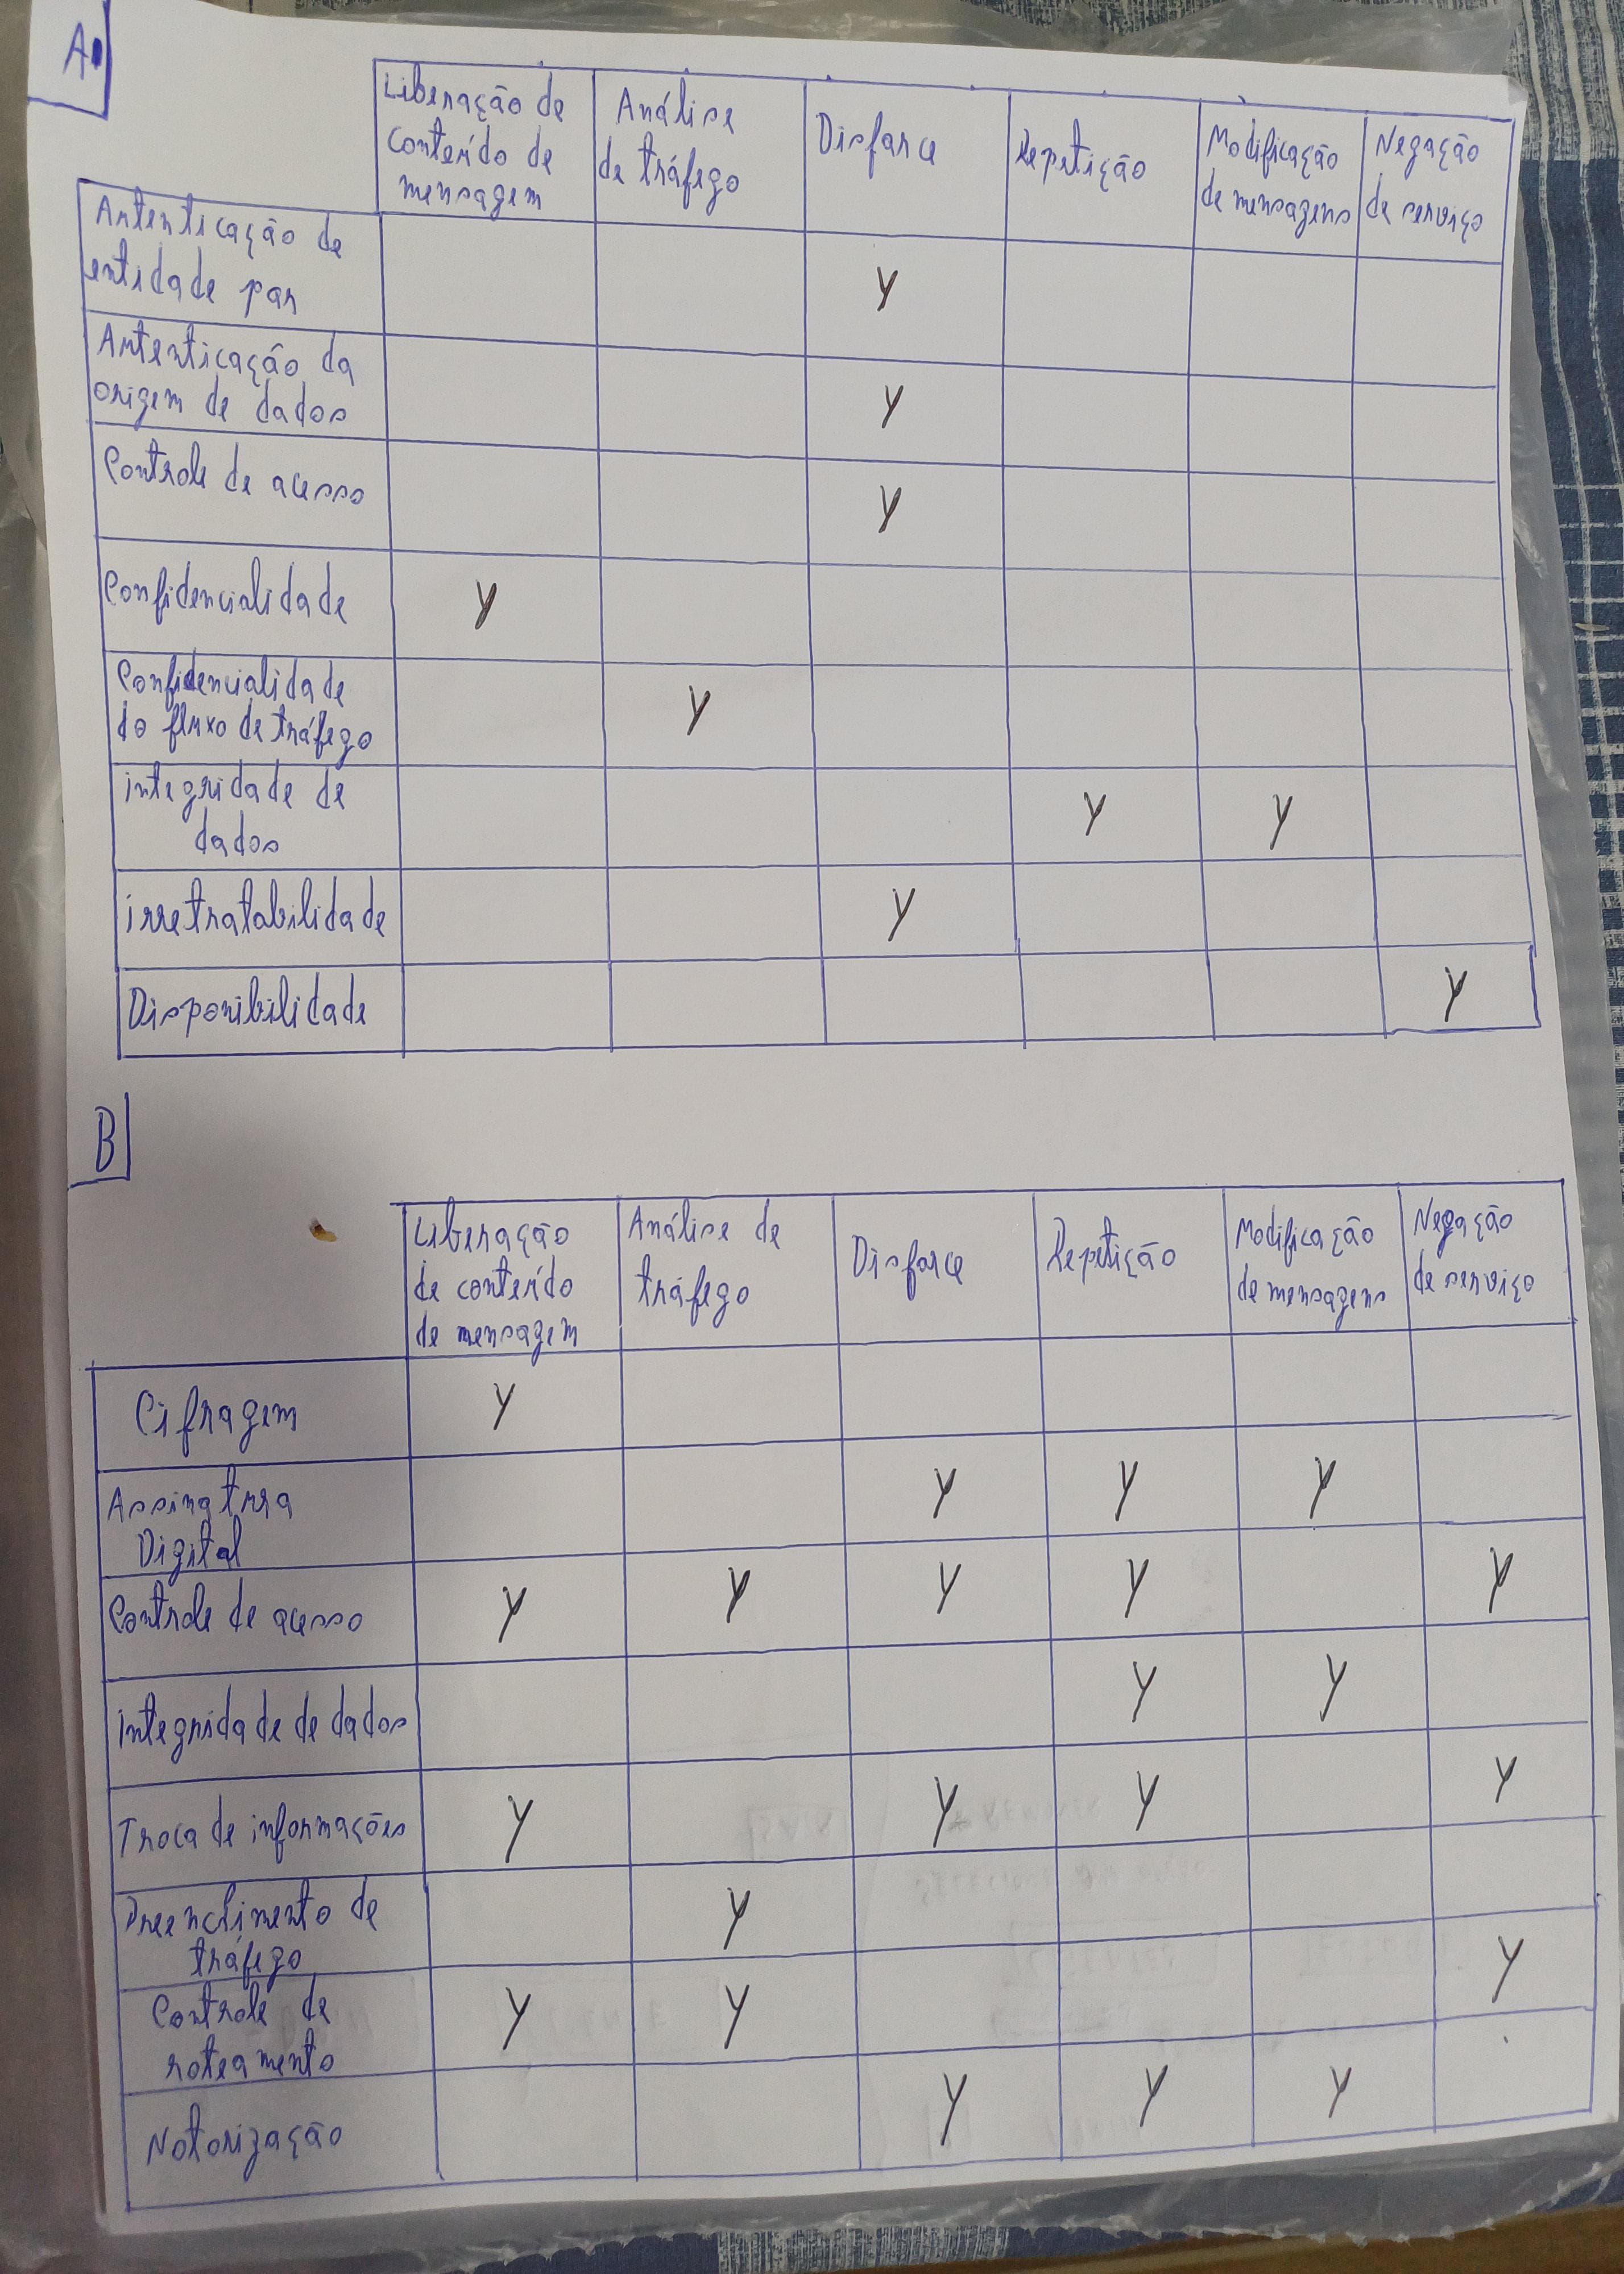 A.
Liberação de conteúdo de mensagem | Análise de tráfego | Disfarce | Repetição | Modificação de mensagens | Negação de serviço
Autenticação de entidade par | | | Y | | |
Autenticação da origem de dados | | | Y | | |
Controle de acesso | | | Y | | |
Confidencialidade | Y | | | | |
Confidencialidade do fluxo de tráfego | | Y | | | |
integridade de dados | | | | Y | Y |
irretratabilidade | | | Y | | |
Disponibilidade | | | | | | Y
B
Liberação de conteúdo de mensagem | Análise de tráfego | Disfarce | Repetição | Modificação de mensagens | Negação de serviço
Cifragem | Y | | | | |
Assinatura Digital | | | Y | Y | Y |
Controle de acesso | Y | Y | Y | Y | | Y
integridade de dados | | | | Y | Y |
Troca de informações | Y | | Y | Y | | Y
Preenchimento de tráfego | | Y | | | |
Controle de roteamento | Y | Y | | | | Y
Notorização | | | Y | Y | Y |